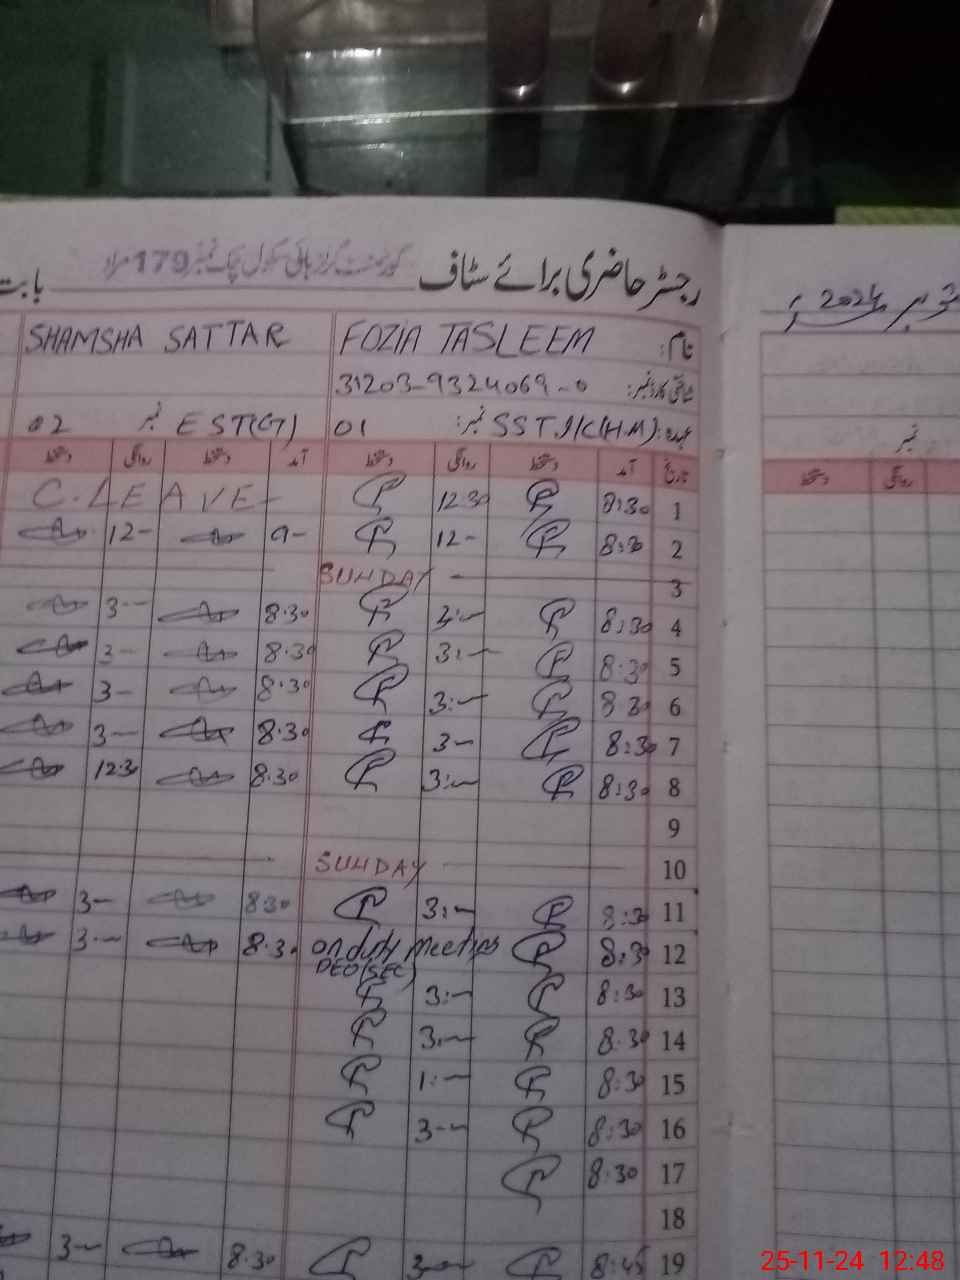 رجسٹر حاضری برائے سٹاف گورنمنٹ گرلز ہائی سکول چک نمبر 179 مراد بابت
2024
نام: FOZIA TASLEEM SHAMSHA SATTAR
شناختی کارڈ نمبر: 31203-9324069-0
عہدہ: SSTIIC(HM) نمبر: 01 EST(G) نمبر 02
نمبر
تاریخ آمد دستخط روانگی دستخط آمد دستخط روانگی دستخط
روانگی دستخط
1 8:30 12:30 C.LEAVE-
2 8:30 12- 9- 12-
3 SUNDAY
4 8:30 3:- 8.30 3-
5 8:30 3:- 8.30 3-
6 8 30 3:- 8.30 3-
7 8:30 3- 8.30 3-
8 8:30 3:- 8.30 12:30
9
10 SUNDAY
11 8:30 3:- 8.30 3-
12 8:30 on duty meeting DEO(SEC) 8.30 3-
13 8:30 3:-
14 8.30 3:-
15 8:30 1:-
16 8:30 3-
17 8.30
18
19 8:45 3- 8.30 3-
25-11-24 12:48